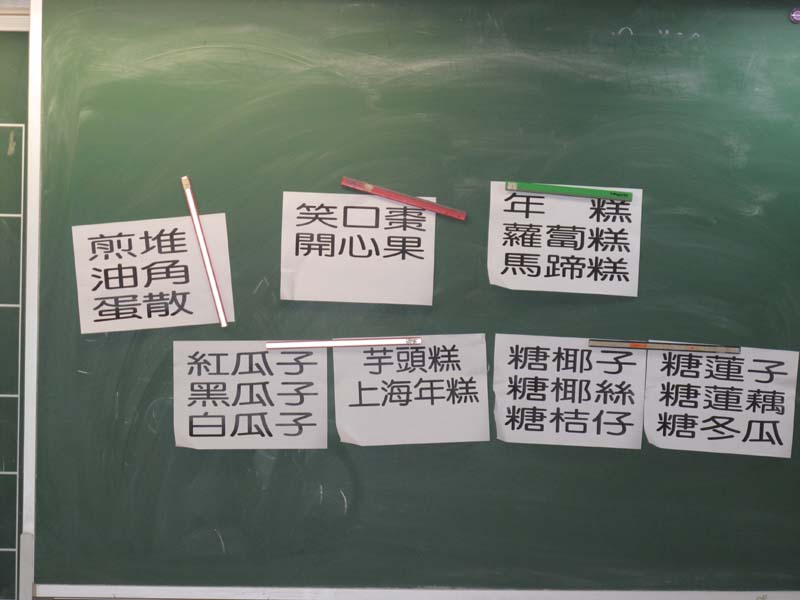 煎堆
油角
蛋散
笑口棗
開心果
年 糕
蘿蔔糕
馬蹄糕
紅瓜子
黑瓜子
白瓜子
芋頭糕
上海年糕
糖椰子
糖椰絲
糖桔仔
糖蓮子
糖蓮藕
糖冬瓜